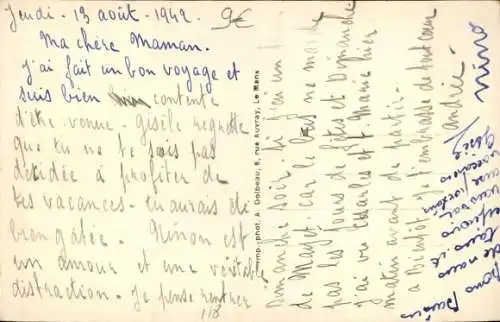 Jeudi - 13 août - 1942
9€
Ma chère Maman.
J'ai fait un bon voyage et
suis bien contente
d'être venue. Gisèle regrette
que tu ne te sois pas
décidée à profiter de
tes vacances - tu aurais été
bien gâtée. Ninon est
un amour et une véritable
distraction. Je pense rentrer
Dimanche soir si j'ai un
de Mayet. car le bus ne marche
pas les jours de fêtes et Dimanche
j'ai vu Charles et Marie hier
matin avant de partir.
à Bientôt, je t'embrasse de tout cœur
andrée
Imp.-phot. A. Dolbeau, 8, rue Auvray, Le Mans
Bons Baisers
de nous
tous.
espérons
Gisèle
118